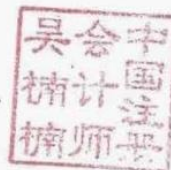 中国注册
会计师
吴楠楠